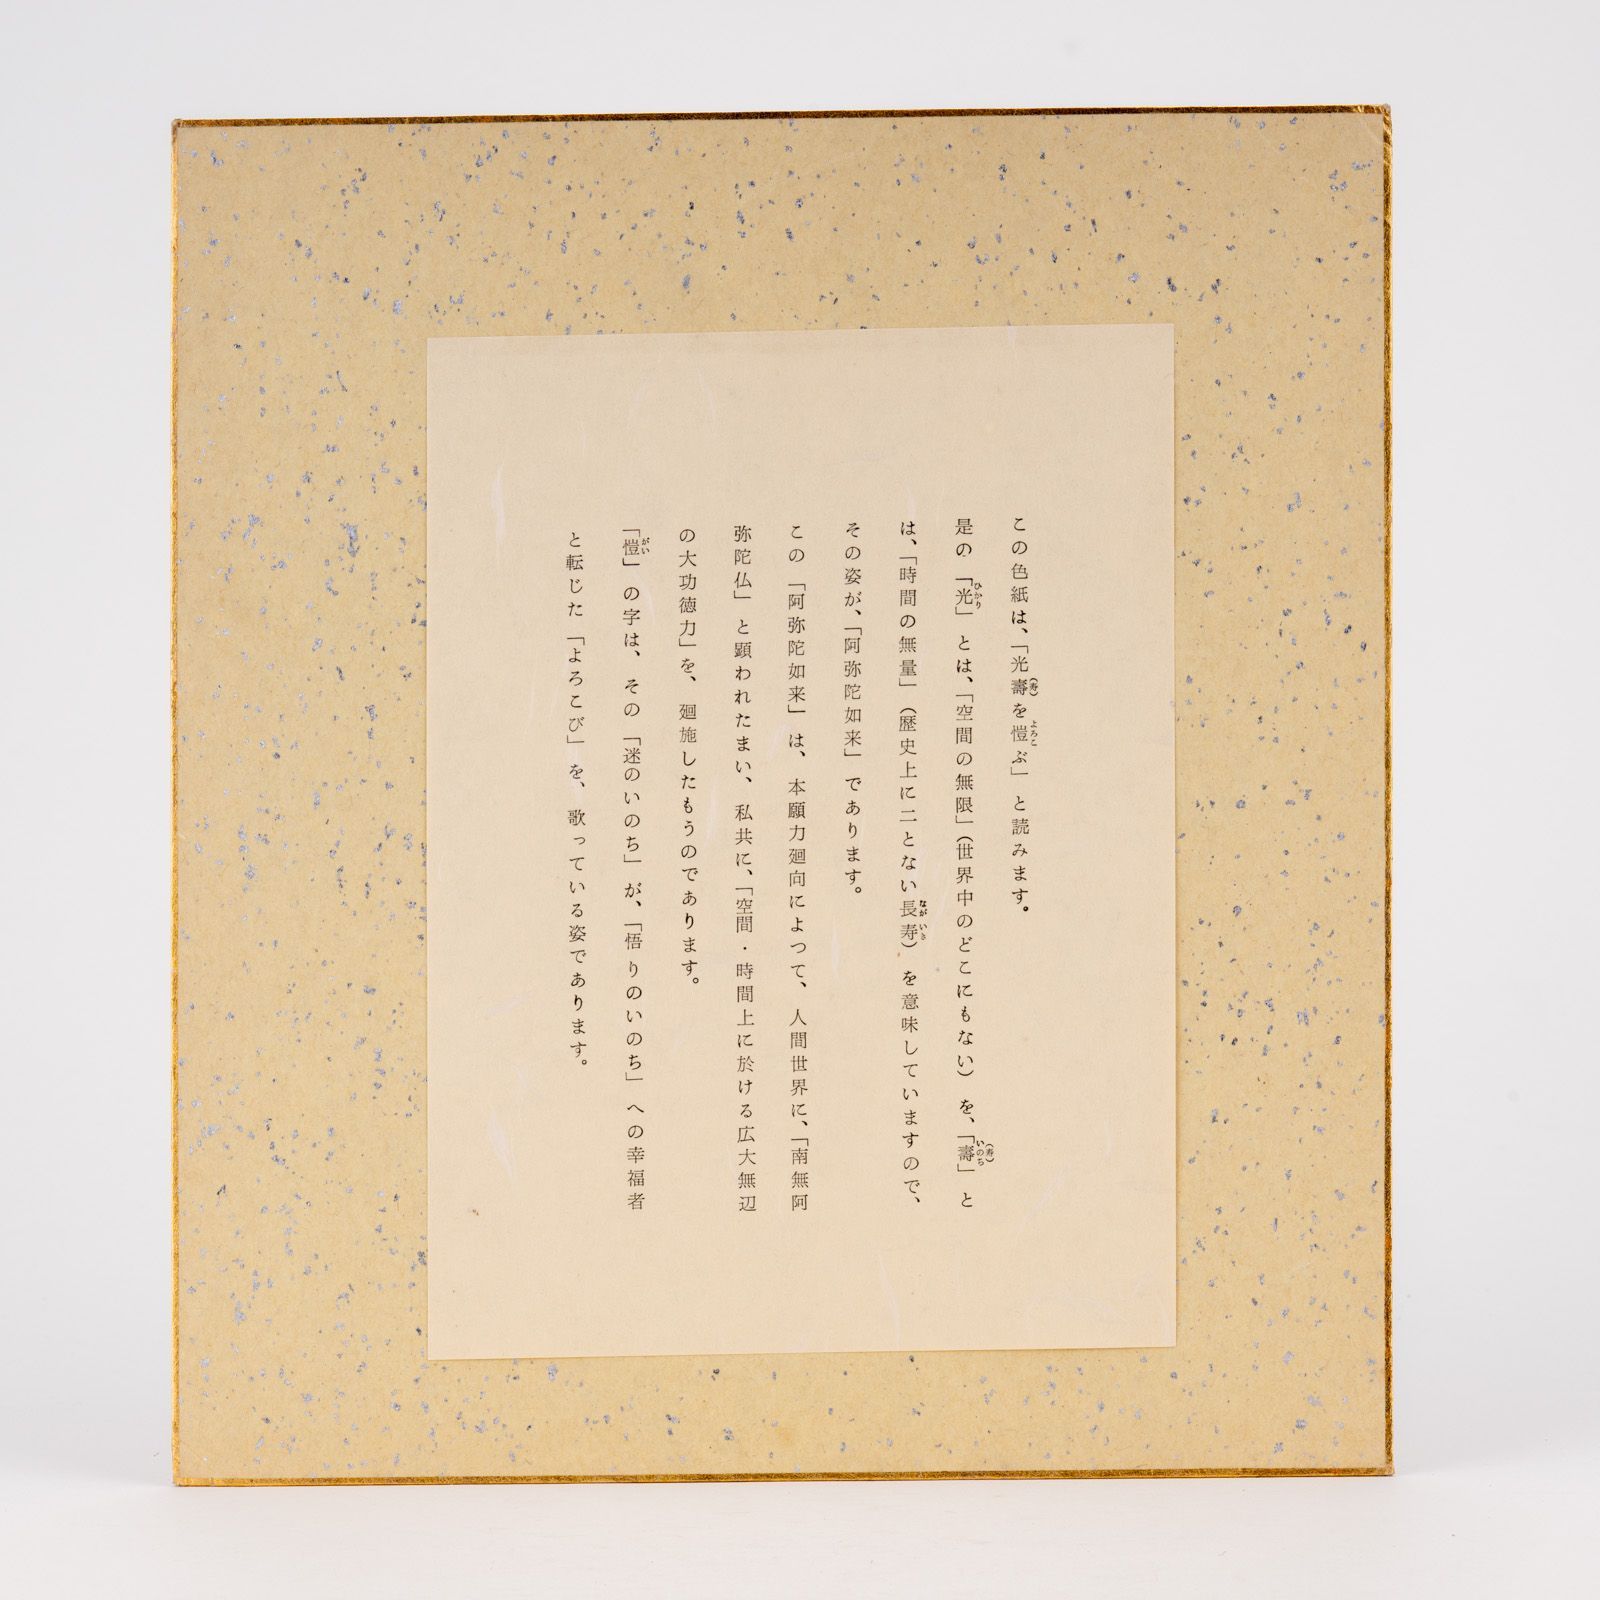 この色紙は、「光壽(寿)を愷(よろこ)ぶ」と読みます。
是の「光(ひかり)」とは、「空間の無限」(世界中のどこにもない)を、「壽(いのち)(寿)」と
は、「時間の無量」(歴史上に二とない長寿(ながいき))を意味していますので、
その姿が、「阿弥陀如来」であります。
この「阿弥陀如来」は、本願力廻向によつて、人間世界に、「南無阿
弥陀仏」と顕われたまい、私共に、「空間・時間上に於ける広大無辺
の大功徳力」を、廻施したもうのであります。
「愷(がい)」の字は、その「迷のいのち」が、「悟りのいのち」への幸福者
と転じた「よろこび」を、歌っている姿であります。